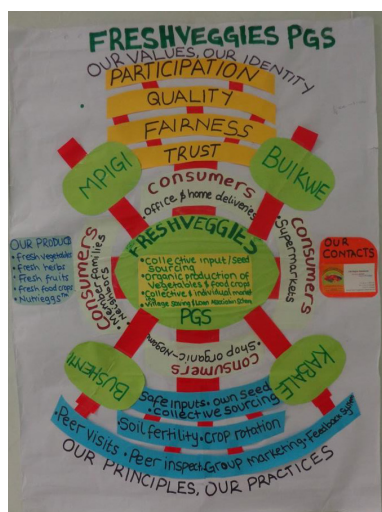 FRESHVEGGIES PGS
OUR VALUES, OUR IDENTITY
PARTICIPATION
QUALITY
FAIRNESS
TRUST
MPIGI
BUIKWE
Consumers
• Office & home deliveries
OUR PRODU
• Fresh vegetables
• Fresh herbs
• Fresh fruits
• Fresh food crops
• Nutrieggs
Consumers
• Member families
• Neighbors
FRESHVEGGIES
• Collective input/seed
sourcing
• Organic production of
Vegetables & food crops
• Collective & individual
• Village Saving & Loan
PGS
Consumers
• Supermarkets
OUR
CONTACTS
Consumers
• Shop organic-Nogam
BUSHENYI
KABALE
Safe inputs • own seed
• Collective sourcing
Soil fertility • Crop rotation
• Peer visits • Peer inspect Group marketing • Feedback
OUR PRINCIPLES, OUR PRACTICES